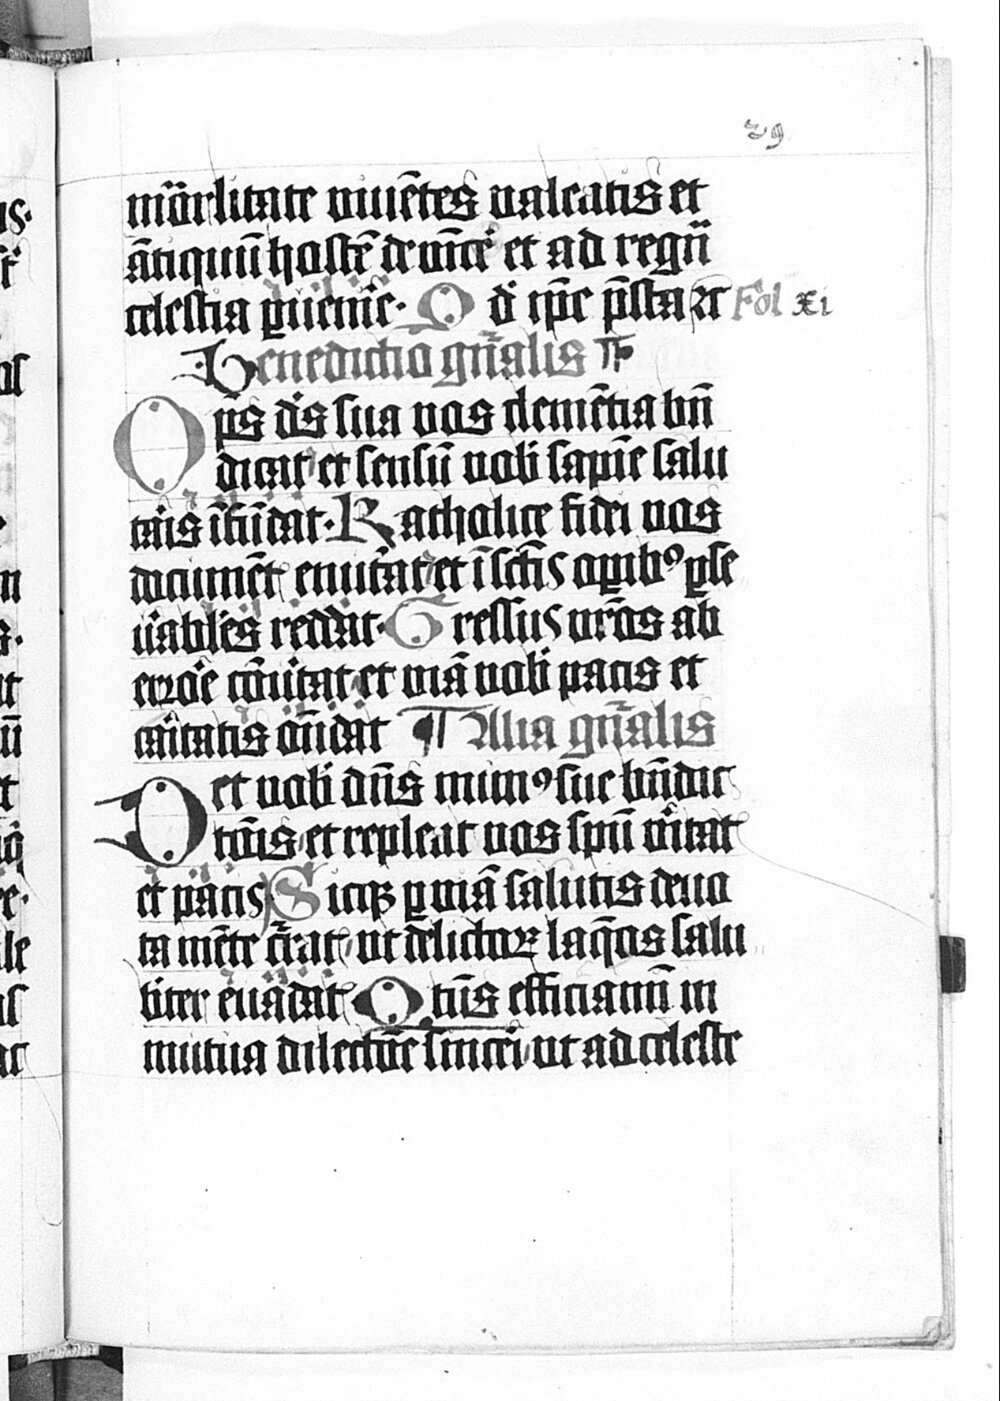 29
mu̅orlitate viue̅tes valeatis et
a̅tiquu̅ hoste̅ deui̅ce̅ et ad regn̅
celestia p̲uenire̅. Qd̅ ip̅e p̅sta ꝛc̅ Fol xi
Benedictio gn̅alis
Op̅s dn̅s sua vos cleme̅tia bn̅
dicat et sensu̅ vob̅ sapie̅ salu
ta̅is i̅fu̅dat. Katholice fidei vos
docume̅t enut̅at et i̅ sct̅is op̲ibꝰ p̲se
u̅abl̅es reddat. Gressus vr̅os ab
erro̅e co̅u̅tat et via̅ vob̅ pacis et
ca̅itatis on̅dat Alia gn̅alis
Det vob̅ dn̅s mu̅nꝰ sue bn̅dic
to̅is et repleat vos spu̅ v̅itat
et pacis Sicqꝫ p̲ via̅ salutis deuo
ta me̅te c̅rat vt delictoꝝ laq̅os salu
biter eua̅dat Qtin̅s efficiami̅ in
mutua dilecto̅e sincei̅ vt ad celeste